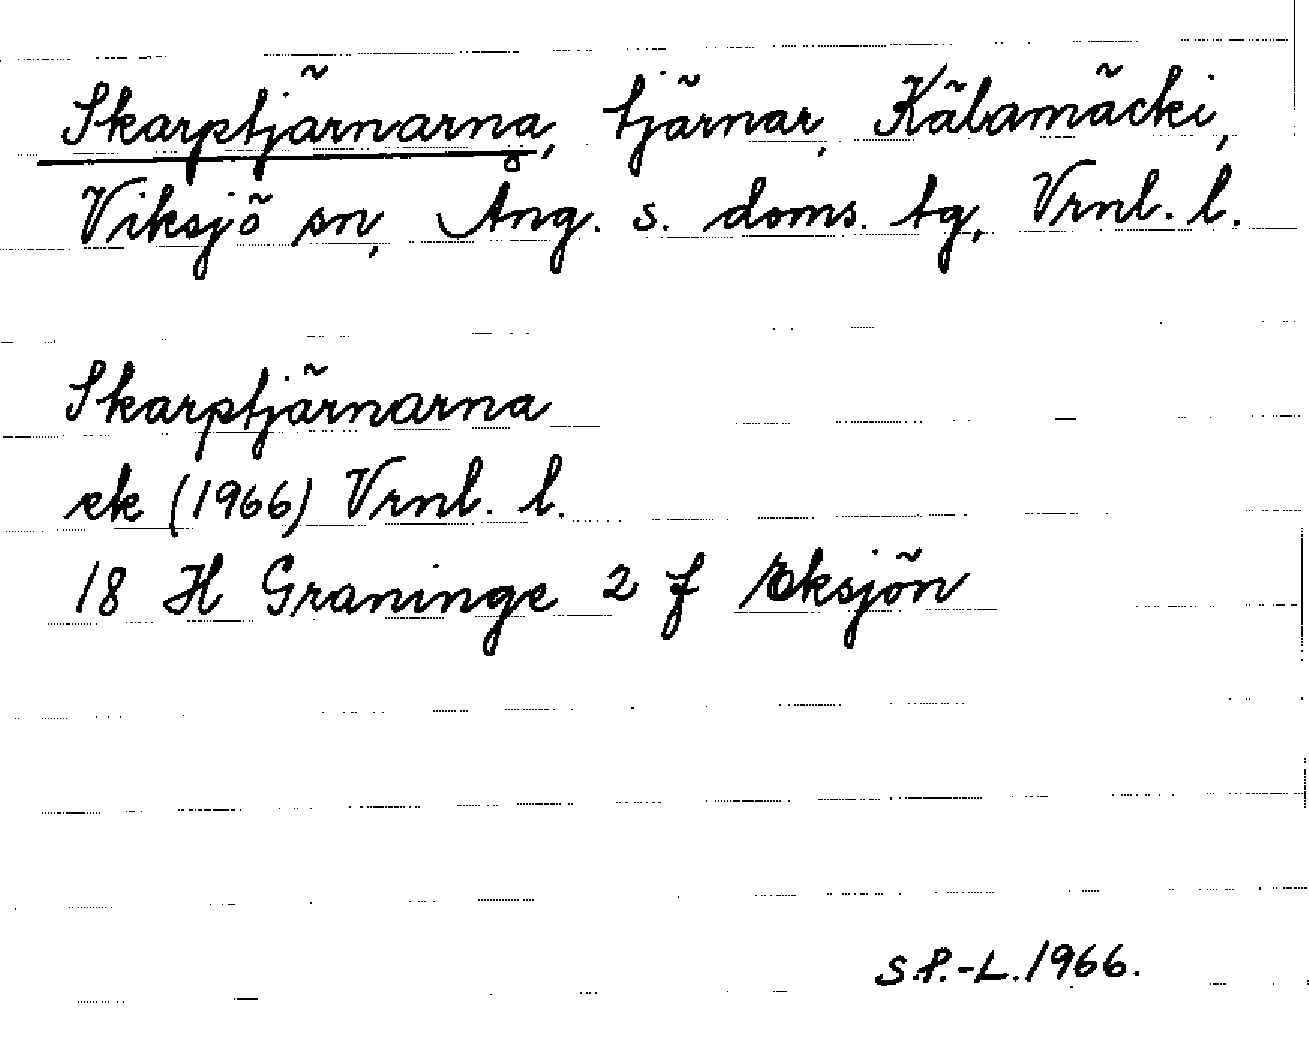 Skarptjärnarna, tjärnar, Kälamäcki,
Viksjö sn, Ång. s. doms. tg, Vrnl. l.
Skarptjärnarna
ek (1966) Vrnl. l.
18 H Graninge 2 f Eksjön
S.P.-L. 1966.